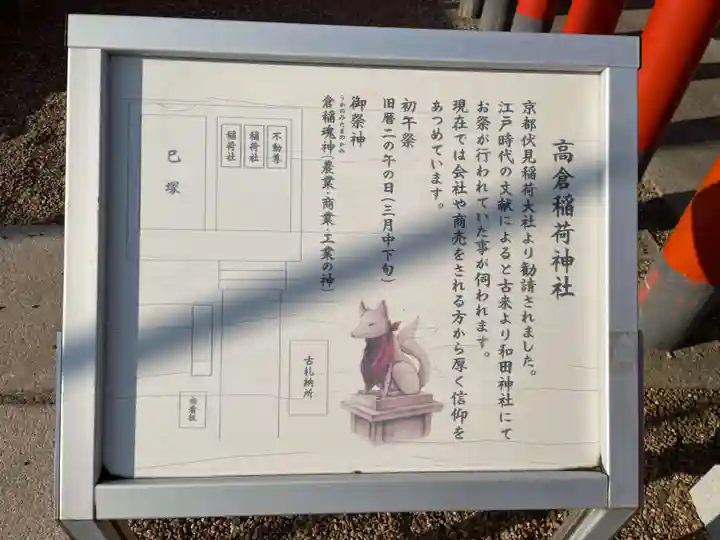 高倉稲荷神社
京都伏見稲荷大社より勧請されました。
江戸時代の文献によると古来より和田神社にて
お祭が行われていた事が伺われます。
現在では会社や商売をされる方から厚く信仰を
あつめています。
初午祭
旧暦二の午の日(三月中下旬)
御祭神
うかのみたまのかみ
倉稲魂神(農業・商業・工業の神)
不動尊
稲荷社
稲荷社
巳塚
古札納所